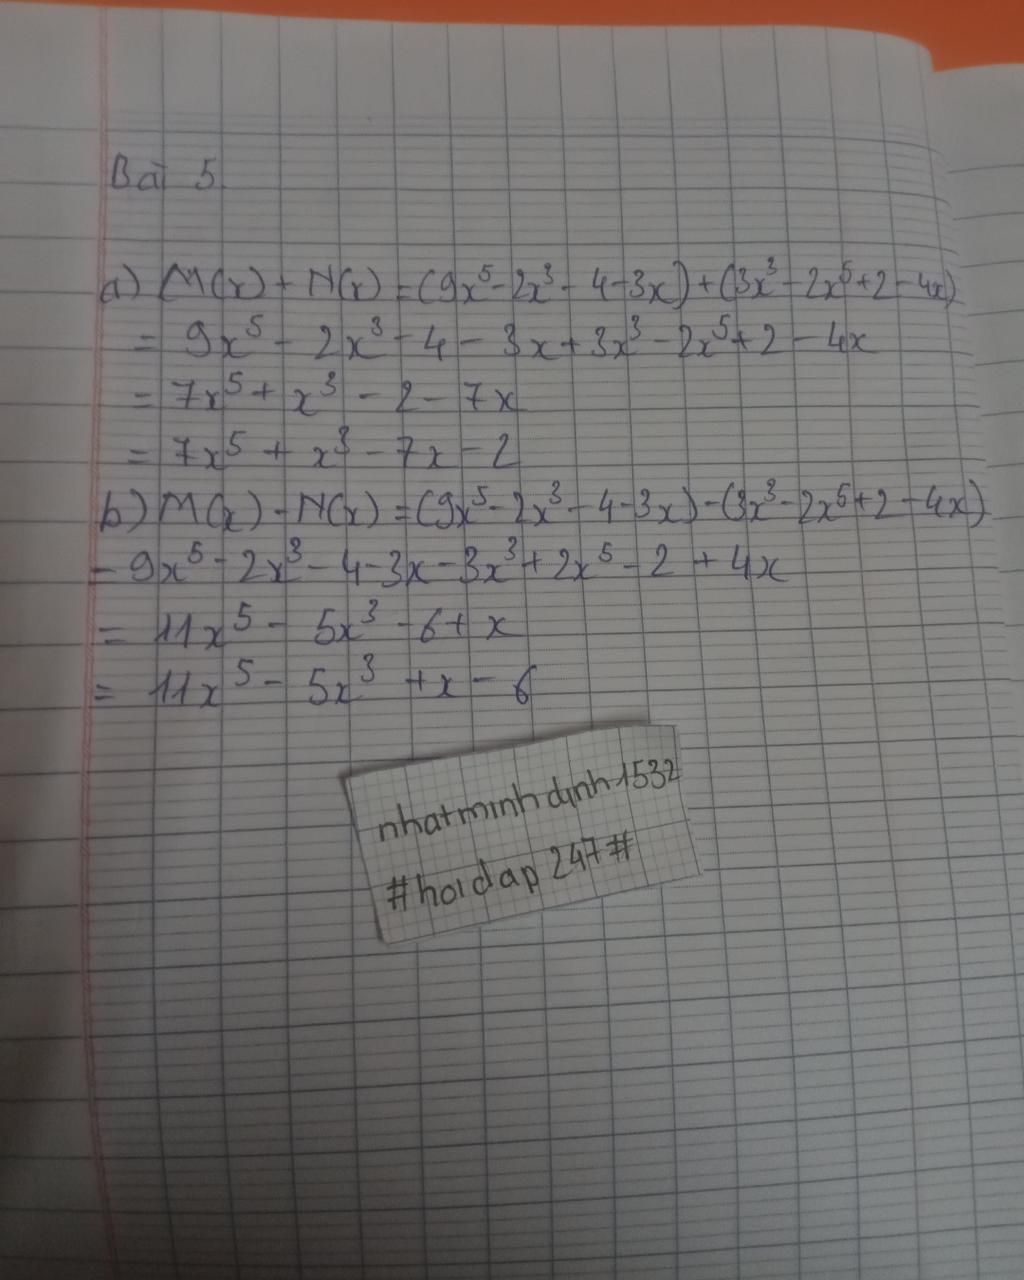 Bài 5.
a) M(x) + N(x) = (9x⁵ - 2x³ - 4 - 3x) + (3x³ - 2x⁵ + 2 - 4x)
= 9x⁵ - 2x³ - 4 - 3x + 3x³ - 2x⁵ + 2 - 4x
= 7x⁵ + x³ - 2 - 7x
= 7x⁵ + x³ - 7x - 2
b) M(x) - N(x) = (9x⁵ - 2x³ - 4 - 3x) - (3x³ - 2x⁵ + 2 - 4x)
= 9x⁵ - 2x³ - 4 - 3x - 3x³ + 2x⁵ - 2 + 4x
= 11x⁵ - 5x³ - 6 + x
= 11x⁵ - 5x³ + x - 6
nhatminhdinh1532
#hoidap247#